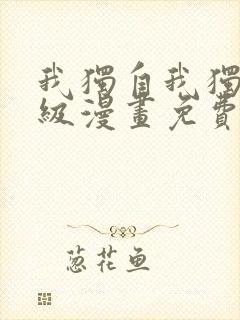 我獨自我獨
級漫畫免費
葱花鱼